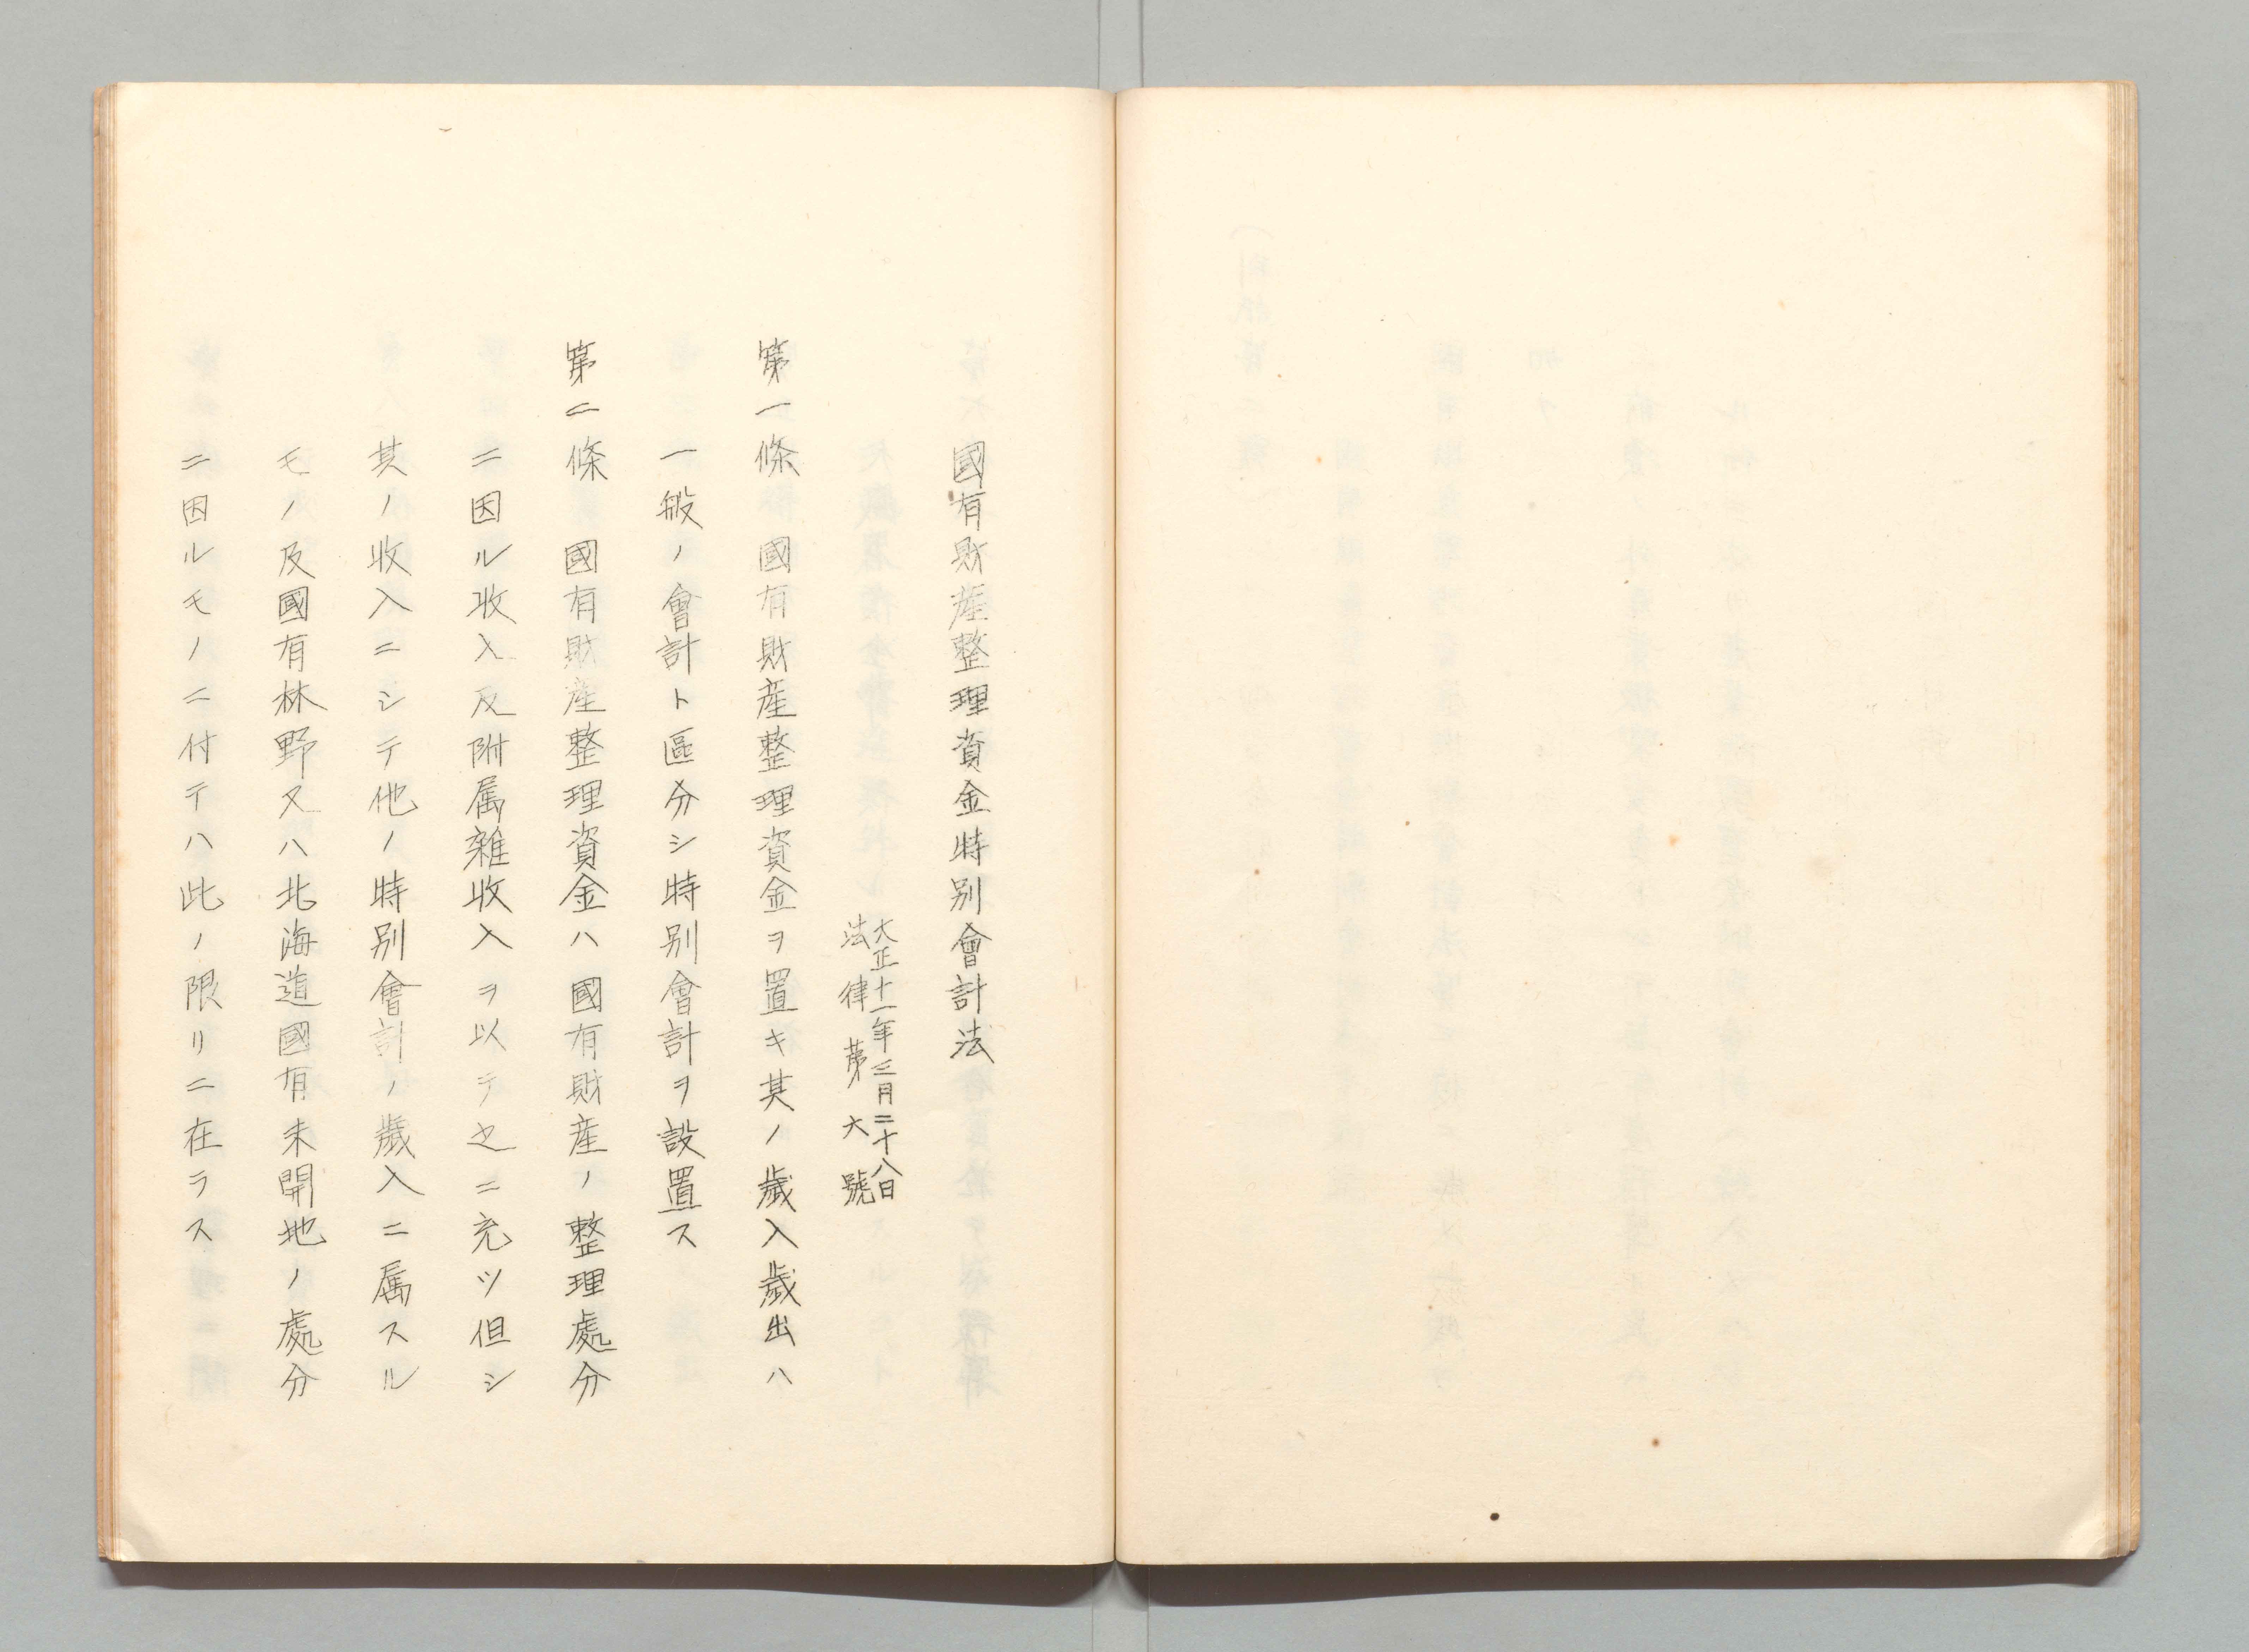 國有財産整理資金特別會計法
大正十一年三月二十八日
法律第六號
第一條　國有財産整理資金ヲ置キ其ノ歳入歳出ハ
一般ノ會計ト區分シ特別會計ヲ設置ス
第二條　國有財産整理資金ハ國有財産ノ整理處分
ニ因ル收入及附属雑收入ヲ以テ之ニ充ツ但シ
其ノ收入ニシテ他ノ特別會計ノ歳入ニ属スル
モノ及國有林野又ハ北海道國有未開地ノ處分
ニ因ルモノニ付テハ此ノ限リニ在ラス